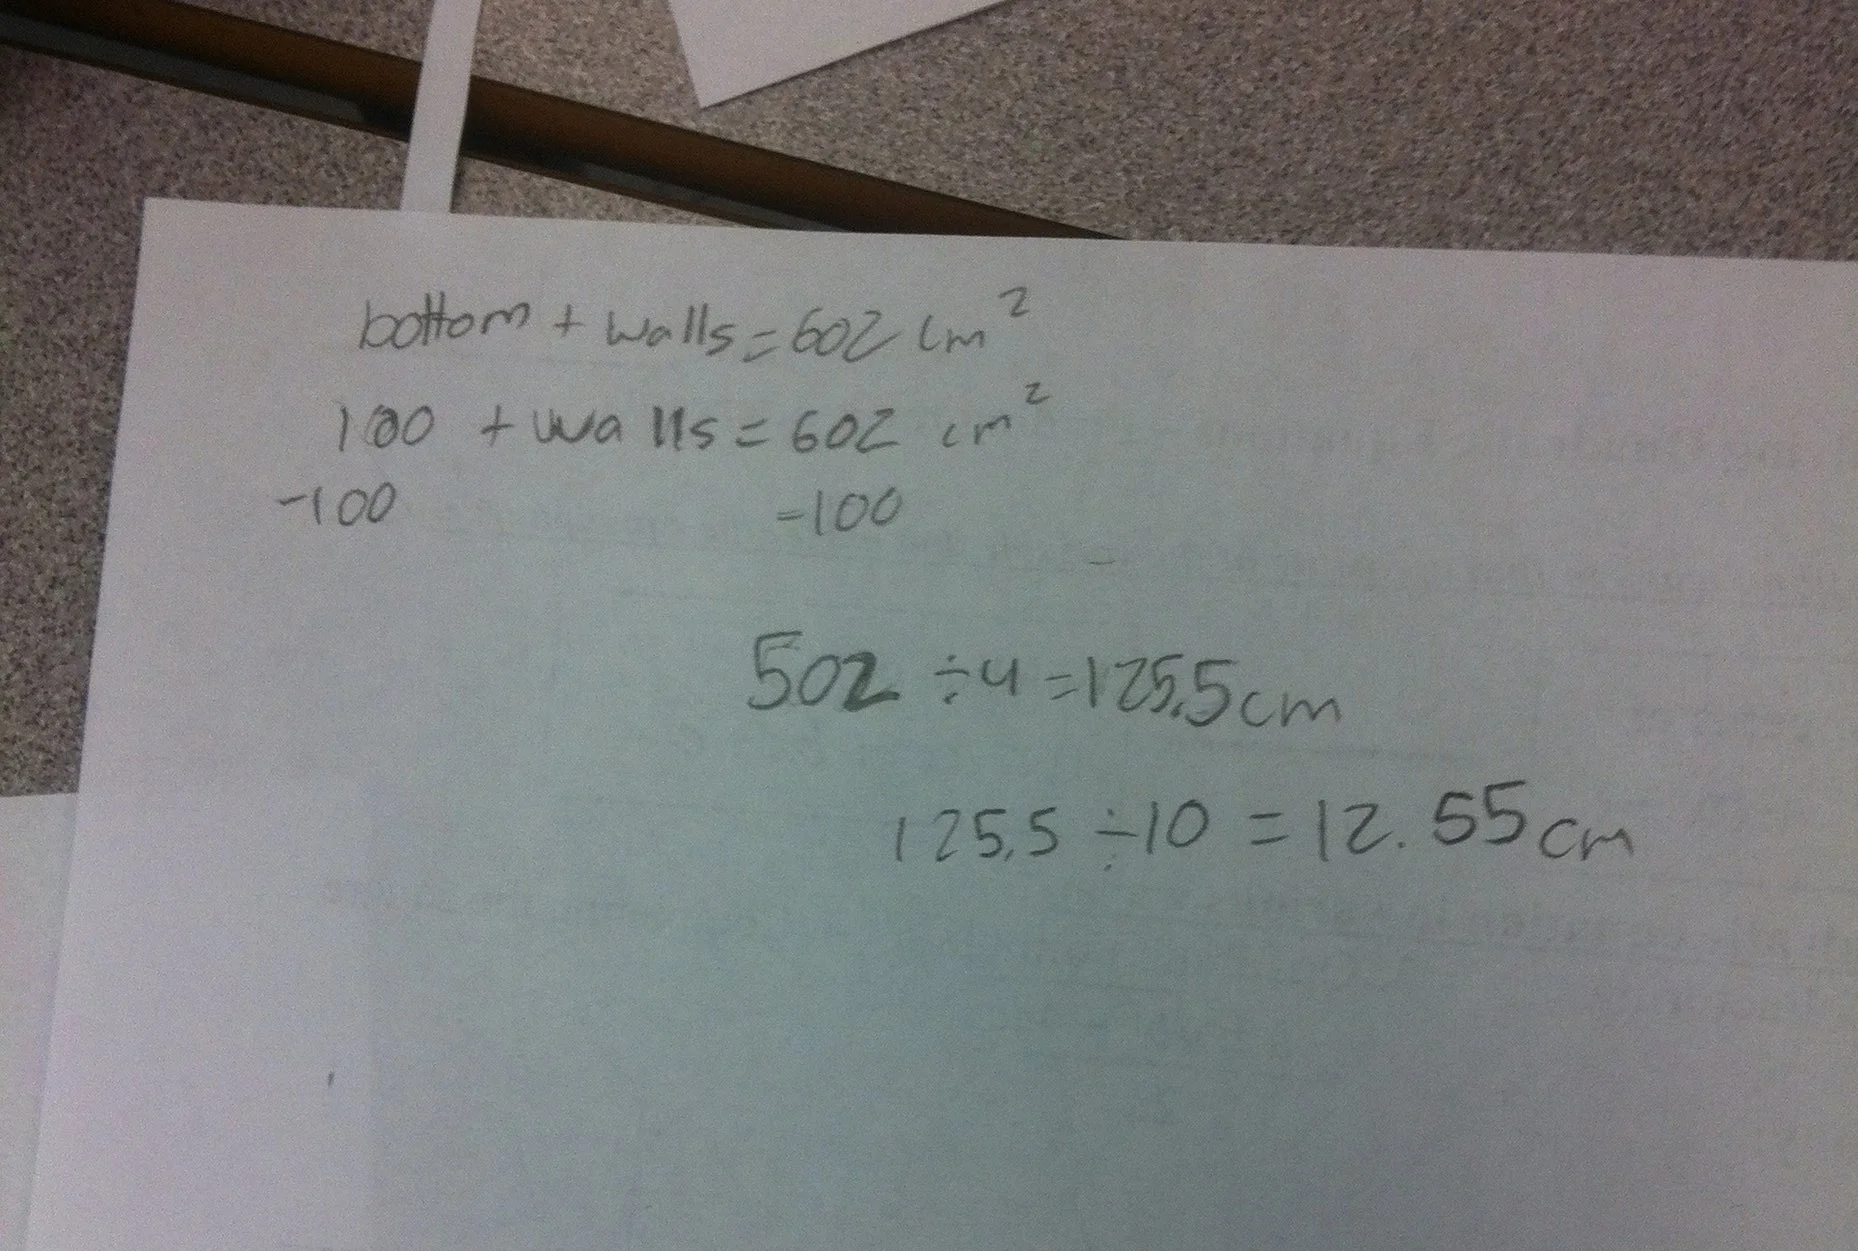 bottom + walls = 602 cm²
100 + walls = 602 cm²
-100 -100
502 ÷ 4 = 125.5 cm
125.5 ÷ 10 = 12.55 cm